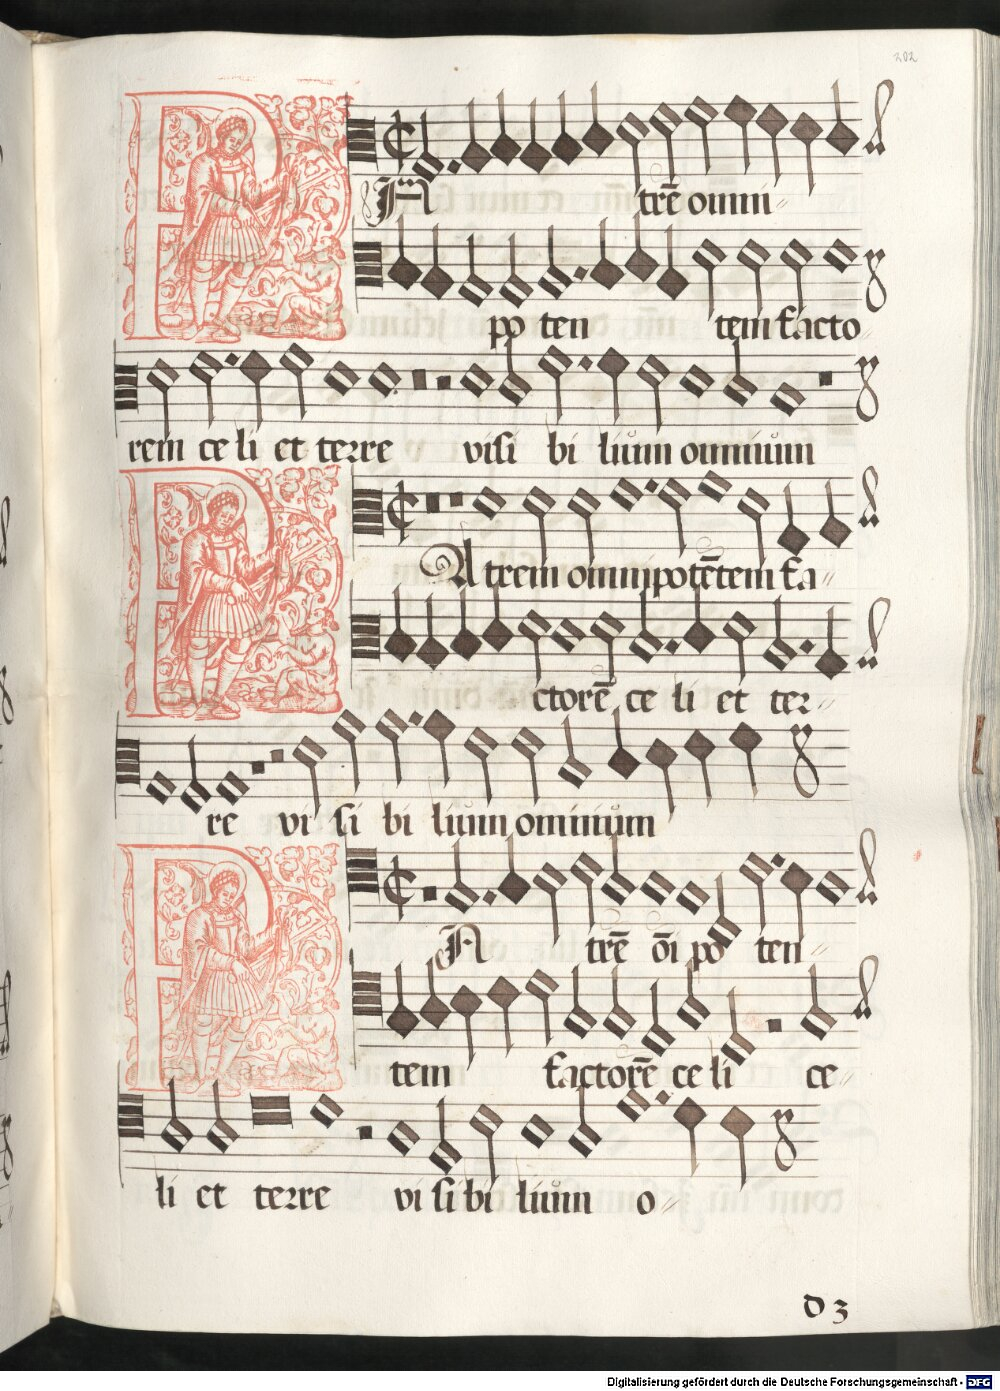 202
PAtrē omni
po ten tem facto
rem ce li et terre visi bi lium omnium
PAtrem omnipotētem fa
ctorē ce li et ter
re vi si bi lium ominium
PA trē oī po ten
tem factorē ce li ce
li et terre vi si bi lium o
d 3
Digitalisierung gefördert durch die Deutsche Forschungsgemeinschaft - DFG